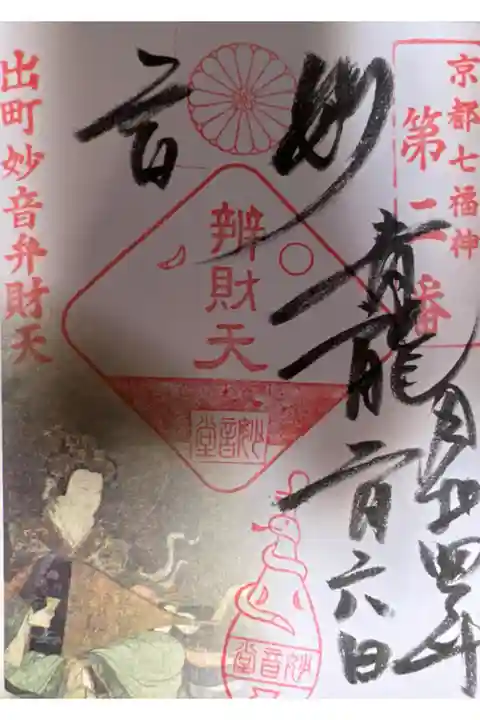 京都七福神
出町妙音弁財天
妙音
青龍
四年
月六日
辨財天
妙音堂
妙音堂